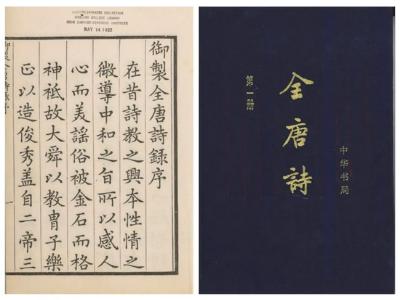 御製全唐詩錄序
在昔詩教之興本性情之
微導中和之旨所以感人
心而美謠俗被金石而格
神祇故大舜以教胄子樂
正以造俊秀蓋自二帝三
全唐詩
第一册
中华书局